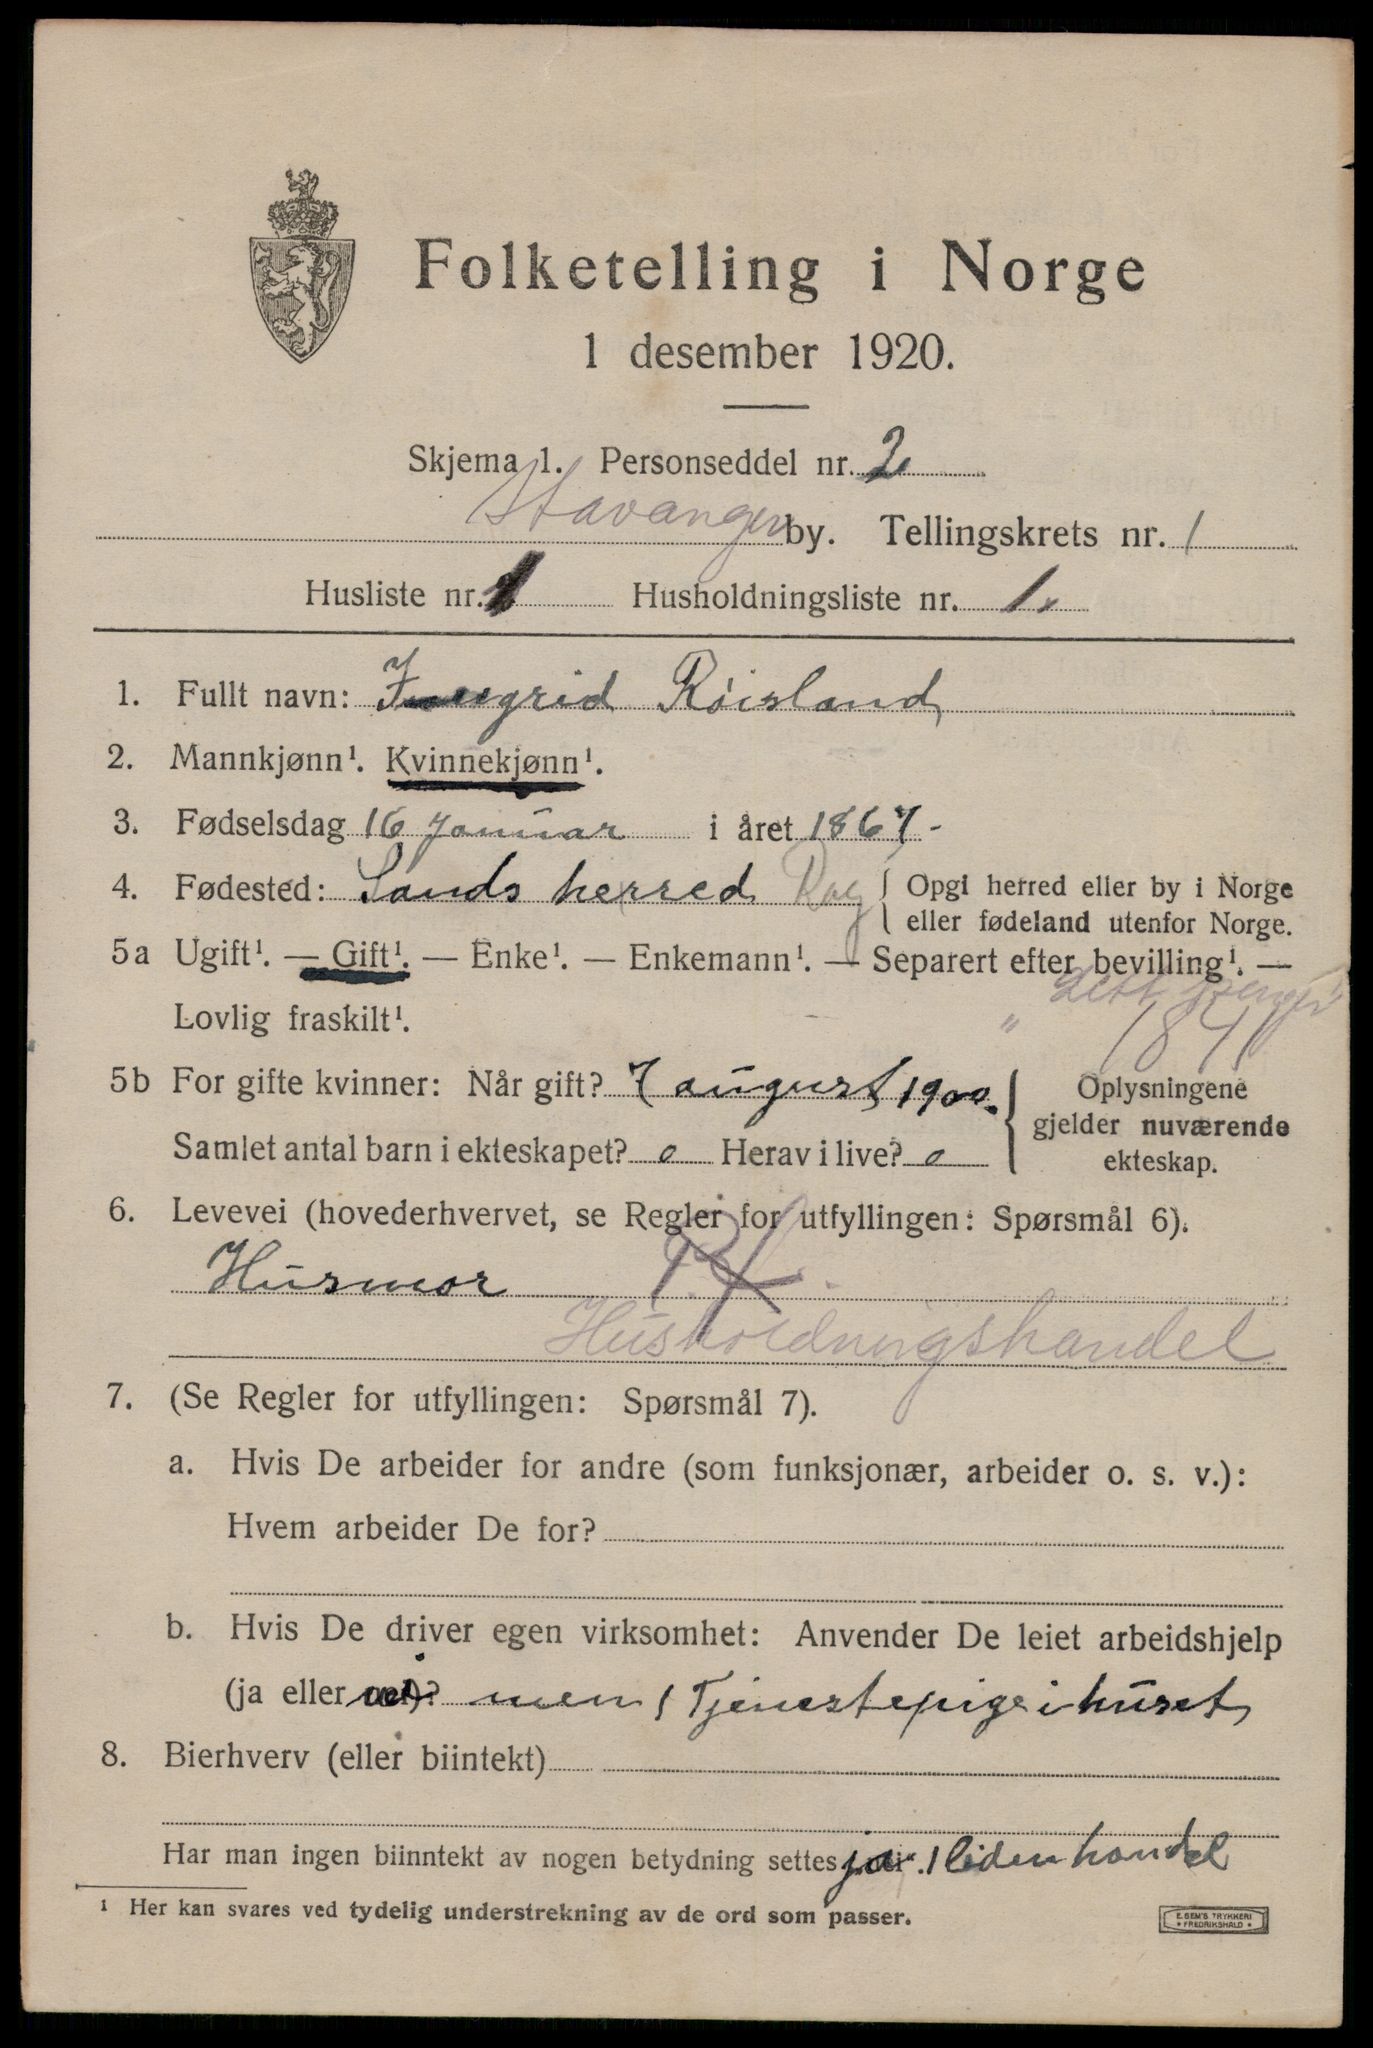 Folketelling i Norge
1 desember 1920.
Skjema 1. Personseddel nr. 2
Stavanger by. Tellingskrets nr. 1
Husliste nr. 1 Husholdningsliste nr. 1.
1. Fullt navn: Ingrid Róisland
2. Mannkjønn¹. Kvinnekjønn¹.
3. Fødselsdag 16 Januar i året 1867-
4. Fødested: Sands herred Rog { Opgi herred eller by i Norge
eller fødeland utenfor Norge.
5a Ugift¹. — Gift¹. — Enke¹. — Enkemann¹. — Separert efter bevilling¹. —
Lovlig fraskilt¹.
5b For gifte kvinner: Når gift? 7 august 1900. { Oplysningene
gjelder nuværende
ekteskap.
Samlet antal barn i ekteskapet? 0 Herav i live? 0
6. Levevei (hovederhvervet, se Regler for utfyllingen: Spørsmål 6).
Husmor
Husholdningshandel
7. (Se Regler for utfyllingen: Spørsmål 7).
a. Hvis De arbeider for andre (som funksjonær, arbeider o. s. v.):
Hvem arbeider De for?
b. Hvis De driver egen virksomhet: Anvender De leiet arbeidshjelp
(ja eller nei)? men 1 Tjenestepige i huset
8. Bierhverv (eller biintekt)
Har man ingen biinntekt av nogen betydning settes ja. 1 liden handel
¹ Her kan svares ved tydelig understrekning av de ord som passer.
E. SEM'S TRYKKERI
* FREDRIKSHALD *